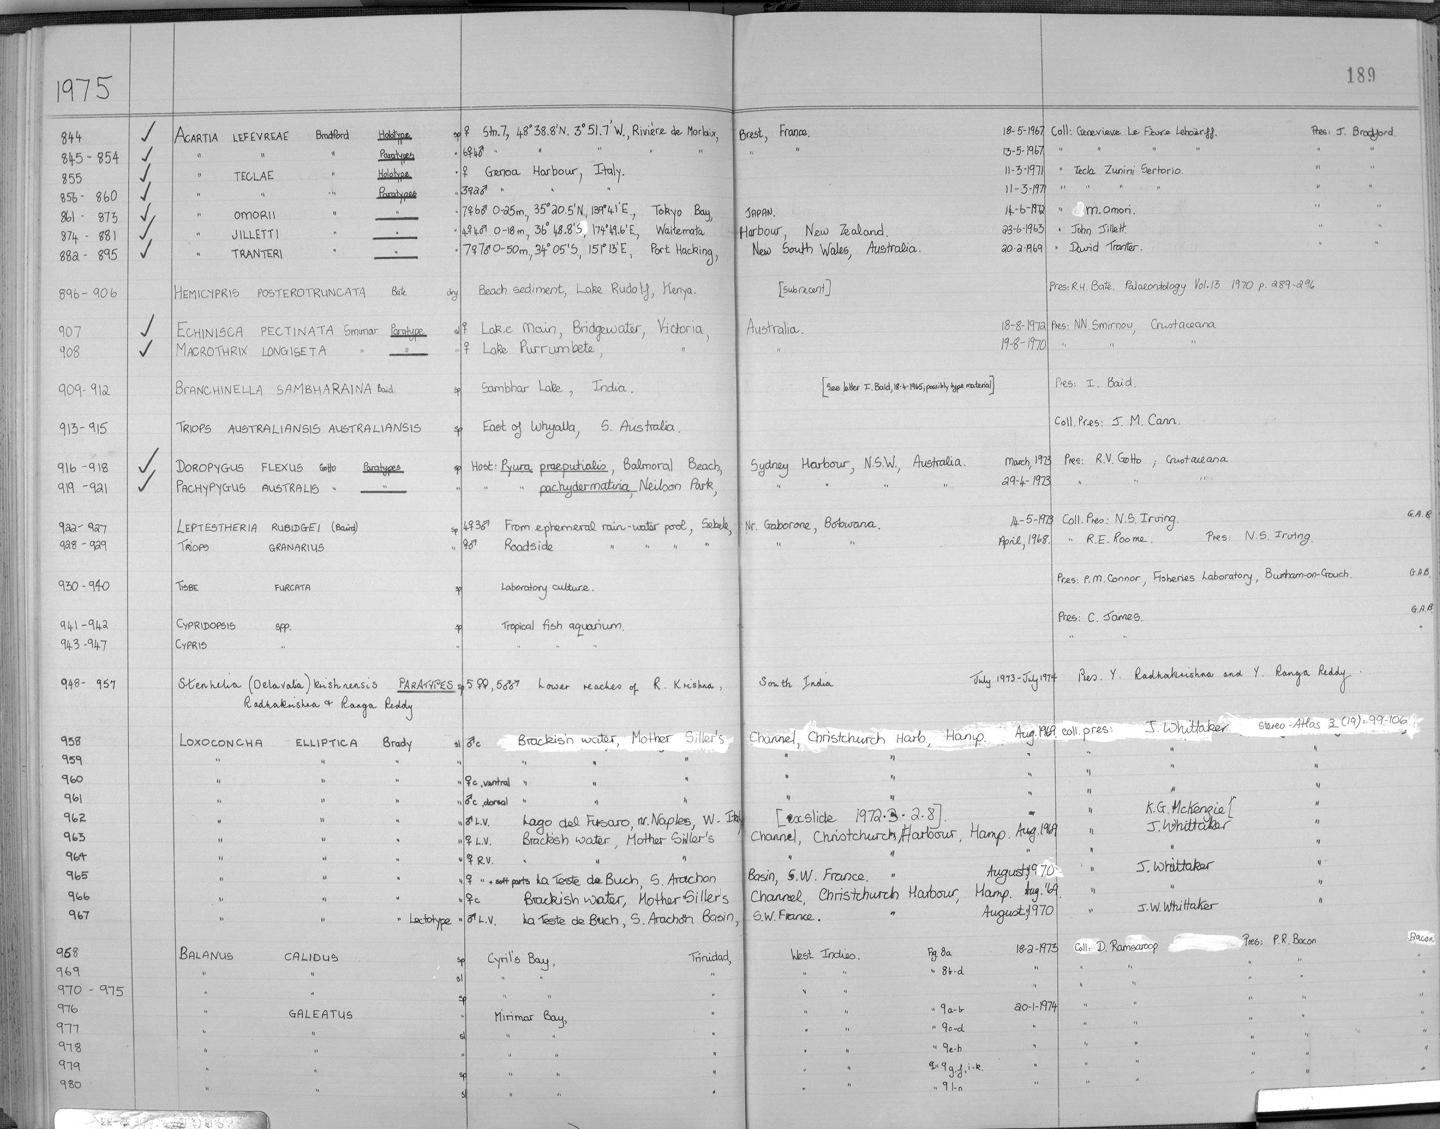 1975
189
844 ✓ ACARTIA LEFEVREAE Bradford Holotype sp ♀ Stn.7, 48°38.8'N. 3°51.7'W., Rivière de Morlaix, Brest, France. 18-5-1967 Coll: Genevieve Le Fèvre Pres: J. Bradford.
845-854 ✓ " " Paratypes " 6♀4♂ " " " " " " 13-5-1967 " " " " " "
855 ✓ " TECLAE Holotype " ♀ Genoa Harbour, Italy. 11-3-1971 " Tecla Zunini Sertorio. " "
856-860 ✓ " " Paratypes " 3♀2♂ " " " 11-3-1971 " " " " " "
861-873 ✓ " OMORII " " 7♀6♂ 0-25m, 35°20.5'N, 139°41'E, Tokyo Bay, JAPAN. 14-6-1972 " M. Omori. " "
874-881 ✓ " JILLETTI " " 4♀4♂ 0-18m, 36°48.8'S, 174°49.6'E, Waitemata Harbour, New Zealand. 23-6-1963 " John Jillett " "
882-895 ✓ " TRANTERI " " 7♀7♂ 0-50m, 34°05'S, 151°13'E, Port Hacking, New South Wales, Australia. 20-2-1969 " David Tranter.
896-906 HEMICYPRIS POSTEROTRUNCATA Bate dry Beach sediment, Lake Rudolf, Kenya. [subrecent] Pres: R.H. Bate. Palaeontology Vol.13 1970 p. 289-296
907 ✓ ECHINISCA PECTINATA Smirnar Paratype sl ♀ Lake Main, Bridgewater, Victoria, Australia. 18-8-1972 Pres: NN. Smirnov, Crustaceana
908 ✓ MACROTHRIX LONGISETA " " " ♀ Lake Purrumbete, " " 19-8-1970 " " "
909-912 BRANCHINELLA SAMBHARAINA Baid sp Sambhar Lake, India. [See letter I. Baid, 18-4-1965, possibly type material] Pres: I. Baid.
913-915 TRIOPS AUSTRALIANSIS AUSTRALIANSIS sp East of Whyalla, S. Australia. Coll. Pres: J. M. Cann.
916-918 ✓ DOROPYGUS FLEXUS Gotto Paratypes sp Host: Pyura praeputialis, Balmoral Beach, Sydney Harbour, N.S.W., Australia. March, 1973 Pres: R.V. Gotto; Crustaceana
919-921 ✓ PACHYPYGUS AUSTRALIS " " " " " pachydermatina, Neilson Park, " " " " 29-4-1973 " " "
922-927 LEPTESTHERIA RUBIDGEI (Baird) sp 4♀3♂ From ephemeral rain-water pool, Sebele, Nr. Gaborone, Botswana. 14-5-1973 Coll. Pres: N.S. Irving. G.A.B
928-929 TRIOPS GRANARIUS " ♀♂ Roadside " " " " " " April, 1968. " R.E. Roome. Pres: N.S. Irving.
930-940 TISBE FURCATA sp Laboratory culture. Pres: P.M. Connor, Fisheries Laboratory, Burnham-on-Crouch. G.A.B.
941-942 CYPRIDOPSIS spp. sp Tropical fish aquarium. Pres: C. James. G.A.B
943-947 CYPRIS " " " " " " "
948-957 Stenhelia (Delavalia) krishnensis PARATYPES sp 5♀♀, 5♂♂ Lower reaches of R. Krishna, South India July 1973-July 1974 Pres. Y. Radhakrishna and Y. Ranga Reddy
Radhakrishna & Ranga Reddy
958 LOXOCONCHA ELLIPTICA Brady sl ♂c Brackish water, Mother Siller's Channel, Christchurch Harb, Hamp. Aug. 1969. coll. pres: J. Whittaker Stereo-Atlas 3 (19): 99-106
959 " " " " " " " " " " " "
960 " " " " ♀c, ventral " " " " " " "
961 " " " " ♂c, dorsal " " " " " " "
962 " " " " ♂ L.V. Lago del Fusaro, nr. Naples, W. Italy [ex slide 1972.3.2.8]. " " K.G. McKenzie [
963 " " " " ♀ L.V. Brackish water, Mother Siller's Channel, Christchurch Harbour, Hamp. Aug. 1969 " J. Whittaker
964 " " " " ♀ R.V. " " " " " " " "
965 " " " " ♀ " + soft parts La Teste de Buch, S. Arachon Basin, S.W. France. " August, 1970 " J. Whittaker
966 " " " " ♀c Brackish water, Mother Siller's Channel, Christchurch Harbour, Hamp. Aug. '69. " "
967 " " " Lectotype " ♂ L.V. La Teste de Buch, S. Arachon Basin, S.W. France. August, 1970 " J.W. Whittaker
968 BALANUS CALIDUS sp Cyril's Bay, Trinidad, West Indies. Fig. 8a 18-2-1973 Coll: D. Ramsaroop Pres: P.R. Bacon Bacon
969 " " sl " " " " " " 8b-d " " " " " "
970-975 " " sp " " " " " " " " " " "
976 " GALEATUS Mirimar Bay, " " " " 9a-b 20-1-1974 " " " " "
977 " " sl " " " " " " 9c-d " " " " " "
978 " " " " " " " " " 9e-h " " " " " "
979 " " sp " " " " " " 9g-j, i-k. " " " " " "
980 " " sl " " " " " " 9l-n " " " " " "